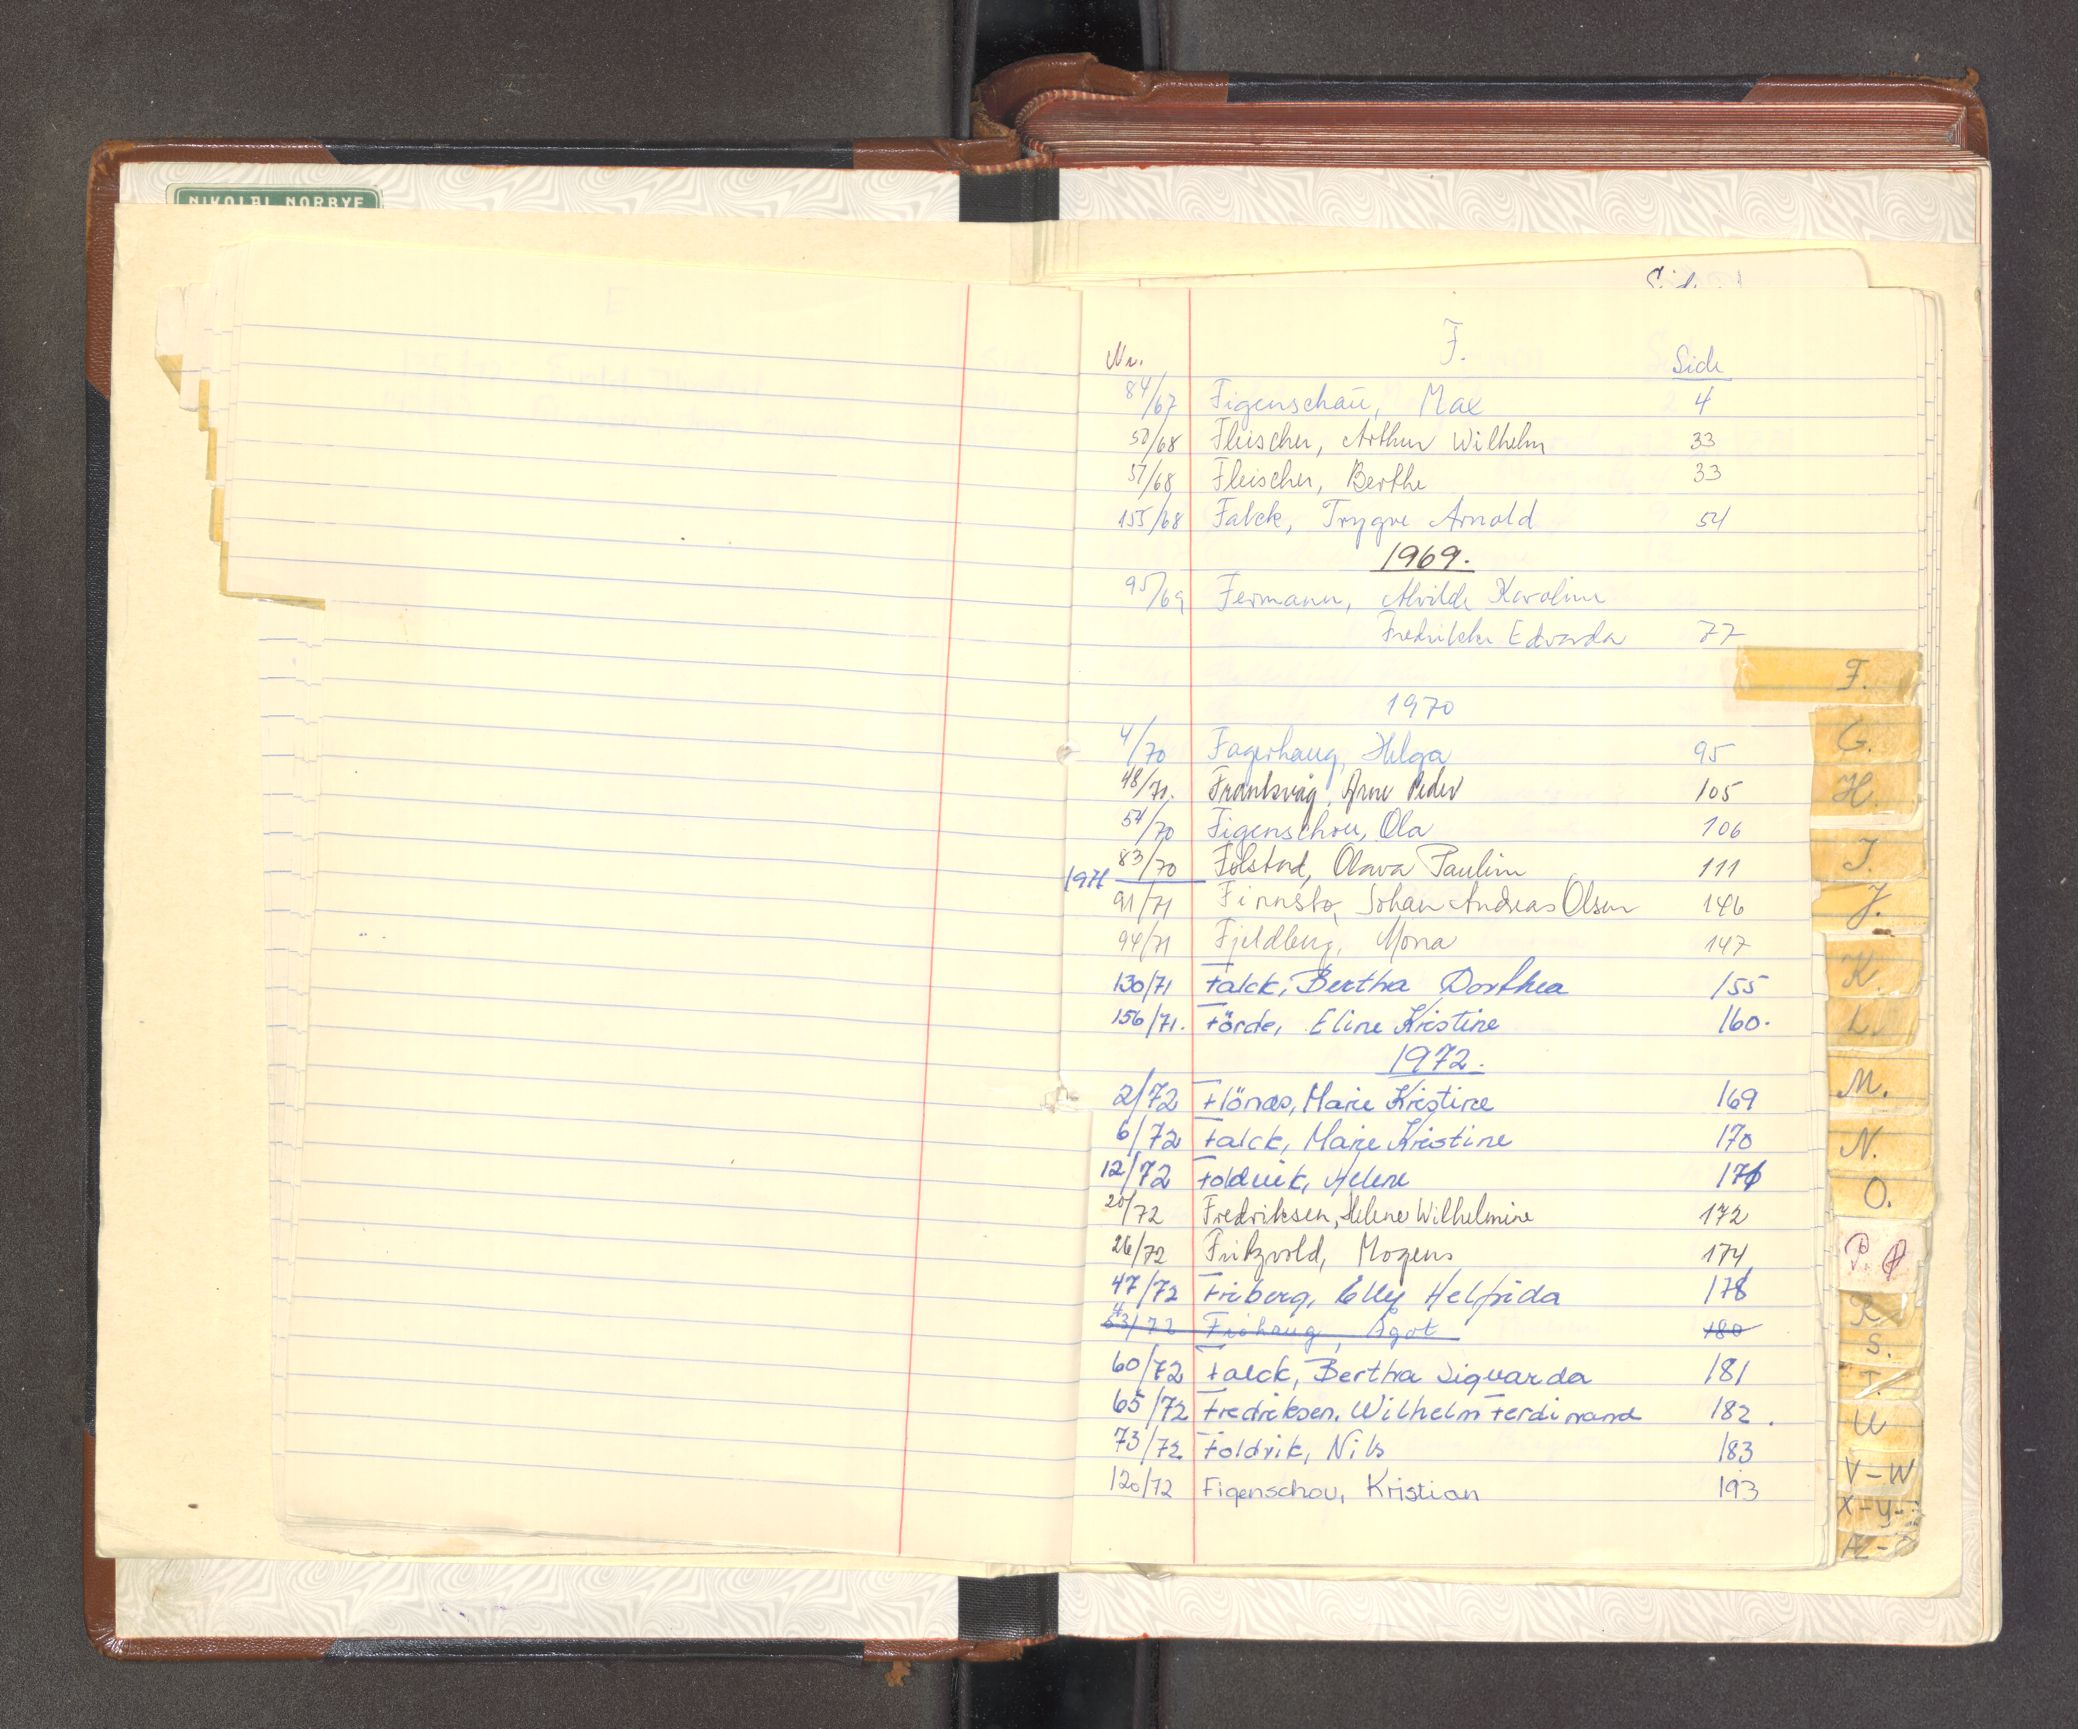 NIKOLAI NORBYE
Side
F.
Nr. Side
84/67 Figenschau, Max 4
50/68 Fleischer, Arthur Wilhelm 33
51/68 Fleischer, Berthe 33
155/68 Falck, Trygve Arnold 54
1969.
95/69 Fermann, Alvilde Karoline
Fredrikke Edvarda 77
1970
4/70 Fagerhaug, Helga 95
48/71. Frantsvåg, Arne Peder 105
54/70 Figenschou, Ola 106
83/70 Følstad, Olava Pauline 111
1971
91/71 Finnsbø, Johan Andreas Olsen 146
94/71 Fjeldberg, Mona 147
130/71 Falck, Bertha Dorthea 155
156/71. Förde, Eline Kristine 160.
1972.
2/72 Flönæs, Marie Kristine 169
6/72 Falck, Marie Kristine 170
12/72 Foldvik, Helene 171
20/72 Fredriksen, Helene Wilhelmine 172
26/72 Fritzvold, Mogens 174
47/72 Friberg, Elly Helfrida 178
53/72 Frøhaug, Agot 180
60/72 Falck, Bertha Siguarda 181
65/72 Fredriksen, Wilhelm Ferdinand 182.
73/72 Foldvik, Nils 183
120/72 Figenschou, Kristian 193
F.
G.
H.
I.
J.
K.
L.
M.
N.
O.
P. Q
R
S.
T.
U
V-W
X-Y-
Æ-Ø